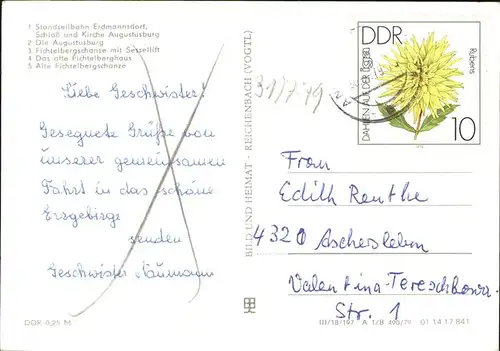 1 Standseilbahn Erdmannsdorf,
Schloß und Kirche Augustusburg
2 Die Augustusburg
3 Fichtelbergschanze mit Sessellift
4 Das alte Fichtelberghaus
5 Alte Fichtelbergschanze
Liebe Geschwister!
Gesegnete Grüße von
unserer gemeinsamen
Fahrt in das schöne
Erzgebirge
senden
Geschwister Naumann
DDR 0,25 M
BILD UND HEIMAT · REICHENBACH (VOGTL)
31/7 79
DDR
DAHLIEN AUS DER
Rubens
10
Frau
Edith Renthe
4320 Aschersleben
Valentina-Tereschkowa-
Str. 1
III/18/197 A 1/B 490/79 01 14 17 841